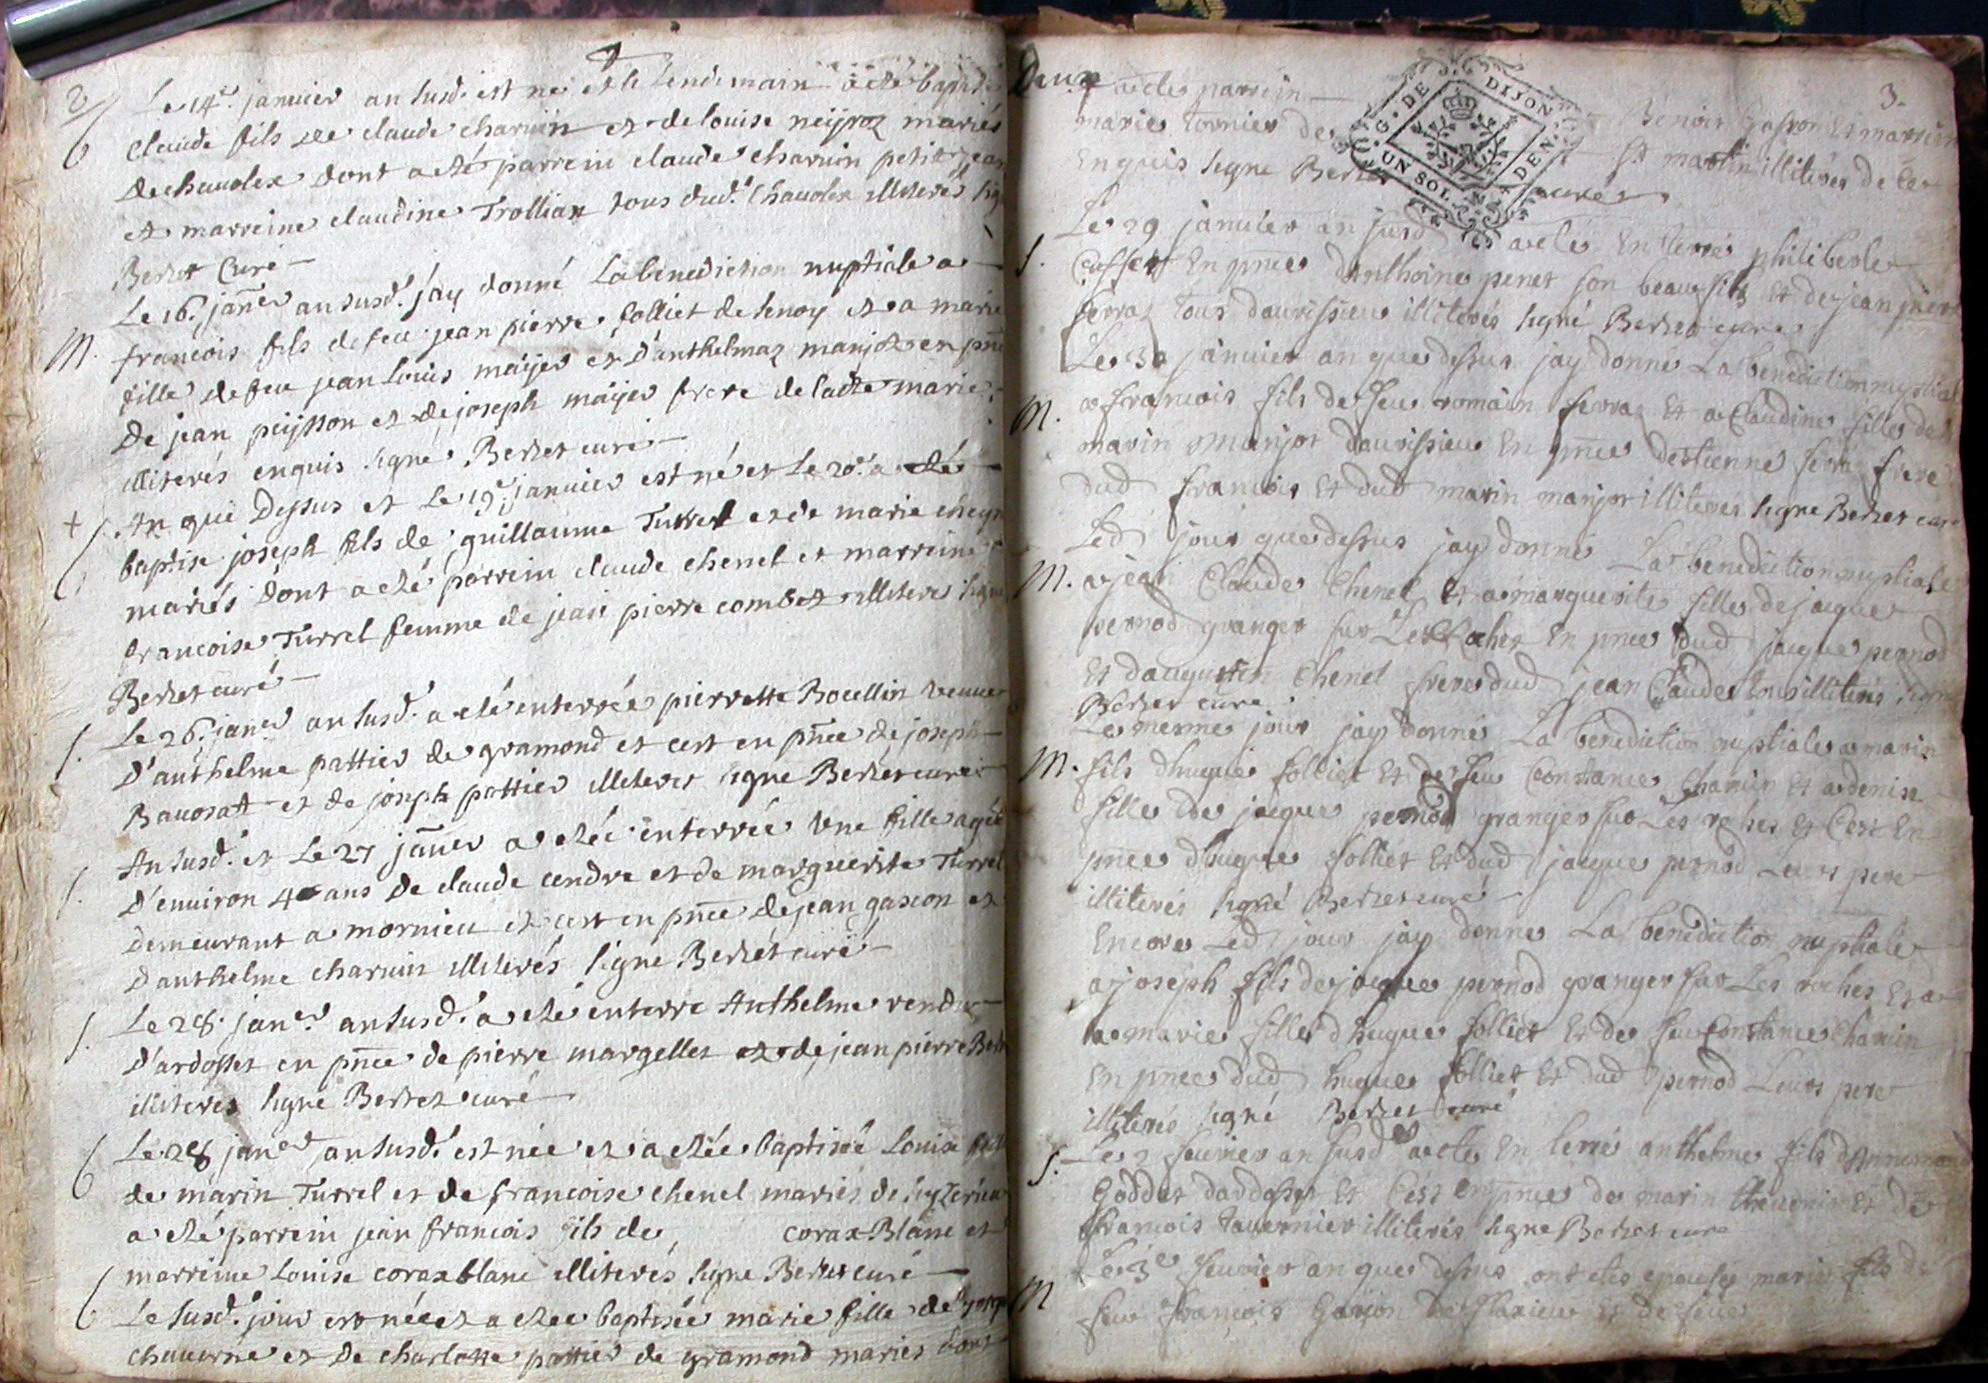 2
Le 14e. janvier an susd. est né et le lendemain a eté baptisé
Claude fils de claude charvin et de louise neyroz mariés
de chavolex dont a eté parrein claude charvin petit jean
et marreine claudine Trollian tous dud. Chavolex illiterés sig
Berzet Curé
Le 16. janer an susd. jay donné La benediction nuptiale a
francois fils de feu jean pierre folliet de senoy et a marie
fille de feu jean louis mayer et d'anthelmaz manjot en pnce
De jean puysson et de joseph mayer frere de ladte marie
illiterés enquis signé Berzet curé
An que Dessus et Le 19e. janvier est né et Le 20e. a eté
baptisé joseph fils de guillaume Turrel et de marie
mariés dont a eté parrein claude chenel et marreine
francoise Turrel femme de jean pierre combet illiterés signé
Berzet curé
Le 26. janer an susd. a eté enterrée pierrette Boullin veuve
D'anthelme pattier de gramond et cest en pnce de joseph
Bavosat et de joseph pattier illiterés signe Berzet curé
An susd. et Le 27 janer a etée enterrée Une fille agée
D'environ 4 ans De claude cendre et de marguerite Turrel
Demeurant a mornieu et cest en pnce De jean gascon et
D'anthelme charvin illiterés signe Berzet curé
Le 28. janer. an susd. a eté enterré Anthelme rendu
D'ardosset en pnce de pierre margellet et de jean pierre
illiterés signe Berzet curé
Le 28 janer an susd. est née et a etée baptisée Louise
de marin Turrel et de francoise chenel mariés de
a eté parrein jean francois fils de corax Blanc et
marreine Louise corax blanc illiterés signe Berzet curé
Le susd. jour est née et a etée baptisée marie fille de
et De charlotte pattier de gramond mariés dont
Deux
3.
a eté parrein Benoit gasson et marreine
marie tornier de St martin illiterés de ce
Enquis signe Berzet curé
G. DE DIJON
UN SOL
DEN.
Le 29 janvier an susd a eté En terré philiberte
En pnce d'anthoine penet son beau fils Et de jean pierre
ferraz tous d'avrissieu illiterés signé Berzet curé
Le 30 janvier an que dessus jay donné La benediction nuptial
a francois fils de feu romain ferraz Et a Claudine fille de
marin manjot d'avrissieu En pnce destienne ferraz frere
dud francois Et dud marin manjot illiterés signe Berzet curé
Led jour que dessus jay donné La benediction nuptiale
a jean Claude Chenel Et a marguerite fille de jacque
pernod granger sur Les Roches En pnce dud jacque pernod
Et d'augustin Chenel frere dud jean Claude tous illiterés signé
Berzet curé
Le meme jour jay donné La benediction nuptiale a marin
fils d'hugue folliet Et de feu Constance Charvin Et a denise
fille de jacque pernod granger sur Les roches Et C'est En
pnce d'hugue folliet Et dud jacque pernod Leurs pere
illiterés signé Berzet curé
Encore Led jour jay donné La benediction nuptiale
a joseph fils de jacque pernod granger sur Les roches Et a
a marie fille d'hugue folliet Et de feu Constance Charvin
En pnce dud hugue folliet Et dud pernod Leurs pere
illiterés signé Berzet curé
Le 2 fevrier an susd a eté En terré anthelme fils
Goddet d'ardosset Et C'est En pnce de marin Et de
francois tavernier illiterés signe Berzet curé
Le 3e fevrier an que dessus ont etés epousés marin fils de
feu francois Et de feue